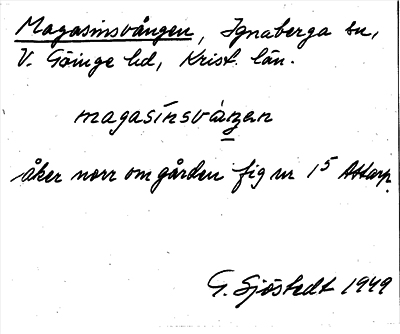 Magasinsvången, Ignaberga sn,
V. Göinge hd, Krist. län.
magasínsvàŋen
åker norr om gården fig nr 15 Attarp.
G. Sjöstedt 1949